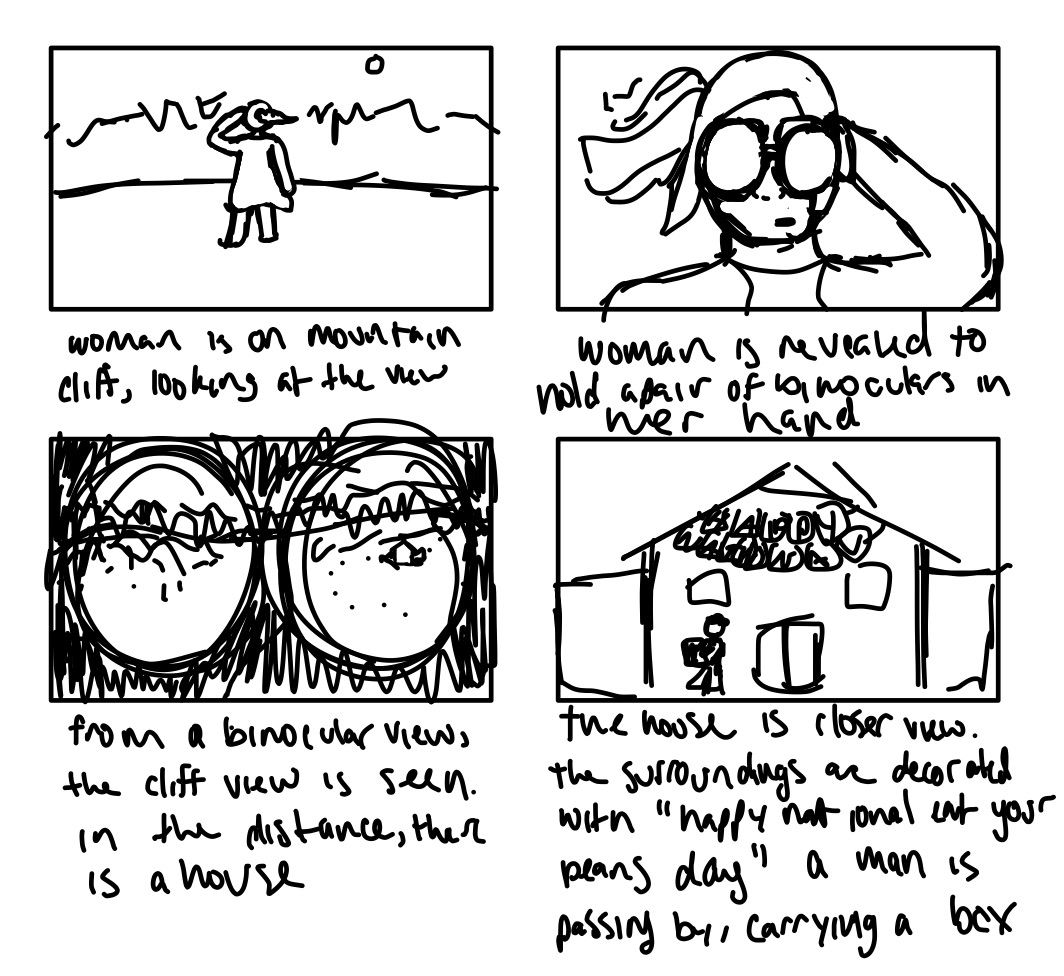 woman is on mountain
cliff, looking at the view
woman is revealed to
hold a pair of binoculars in
her hand
from a binocular view,
the cliff view is seen.
in the distance, ther
is a house
the house is closer view.
the surroundings are decorated
with "happy national eat your
beans day" a man is
passing by, carrying a box